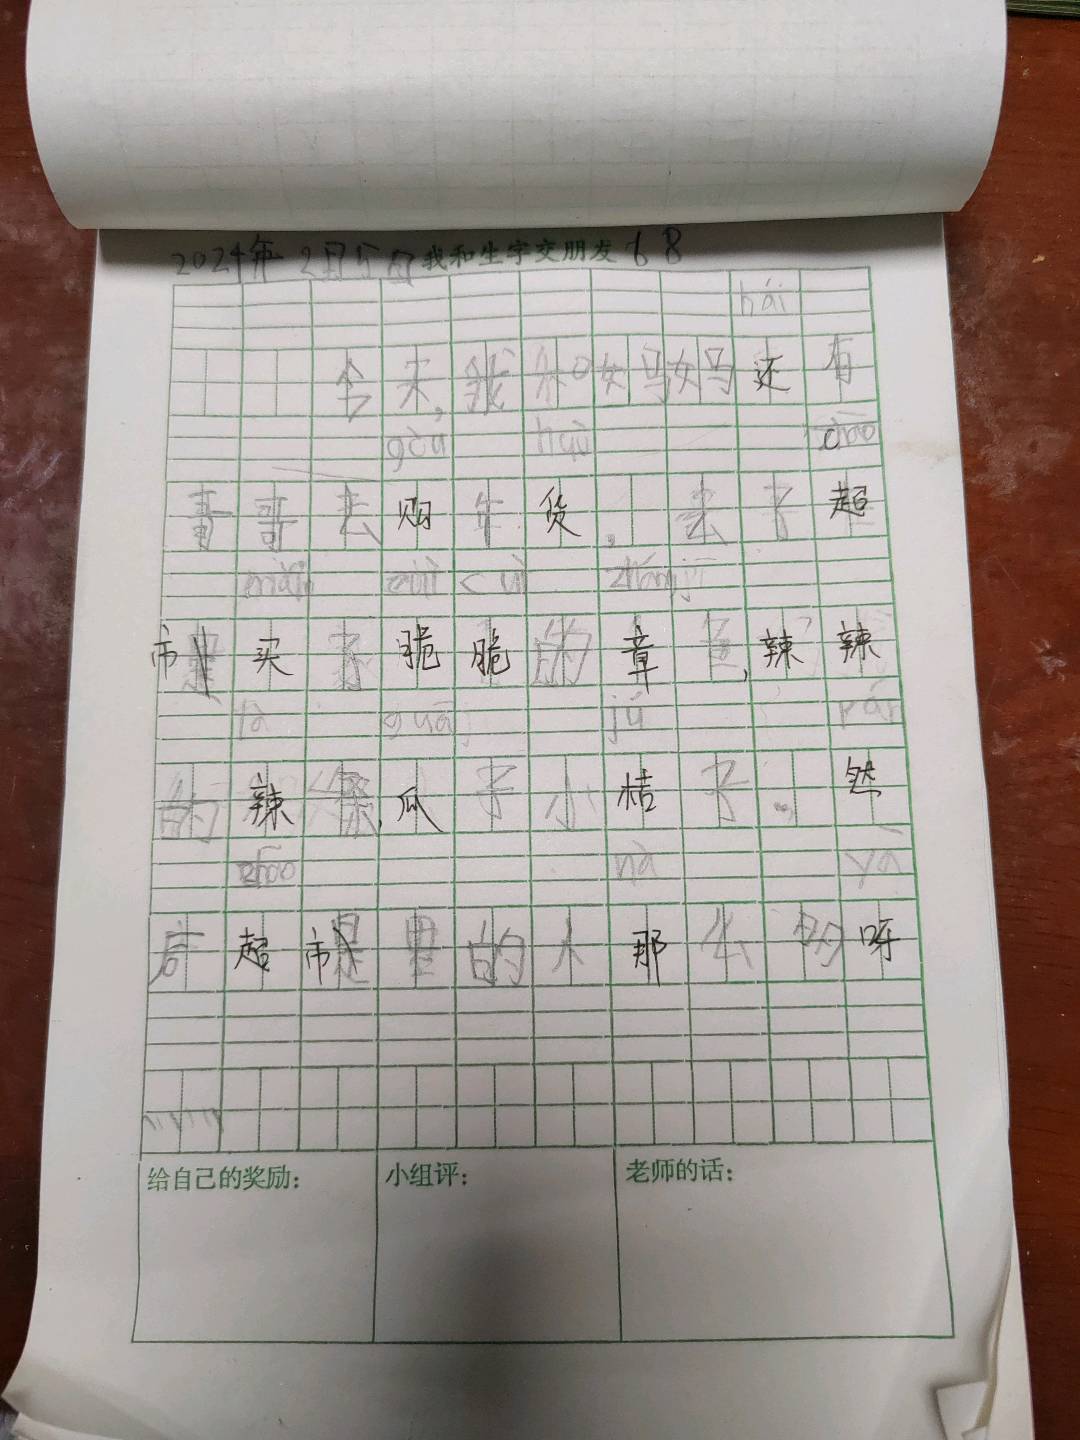 2024年2月5日 我和生字交朋发 68
hái
今天,我和妈妈还有
gòu huò chāo
哥哥去购年货,去了超
mǎi cuì cuì zhāng
市买了脆脆的章鱼,辣辣
là guā jú rán
的辣条,瓜子小桔子。然
chāo nà yā
后超市里的人那么多呀
给自己的奖励: 小组评: 老师的话: